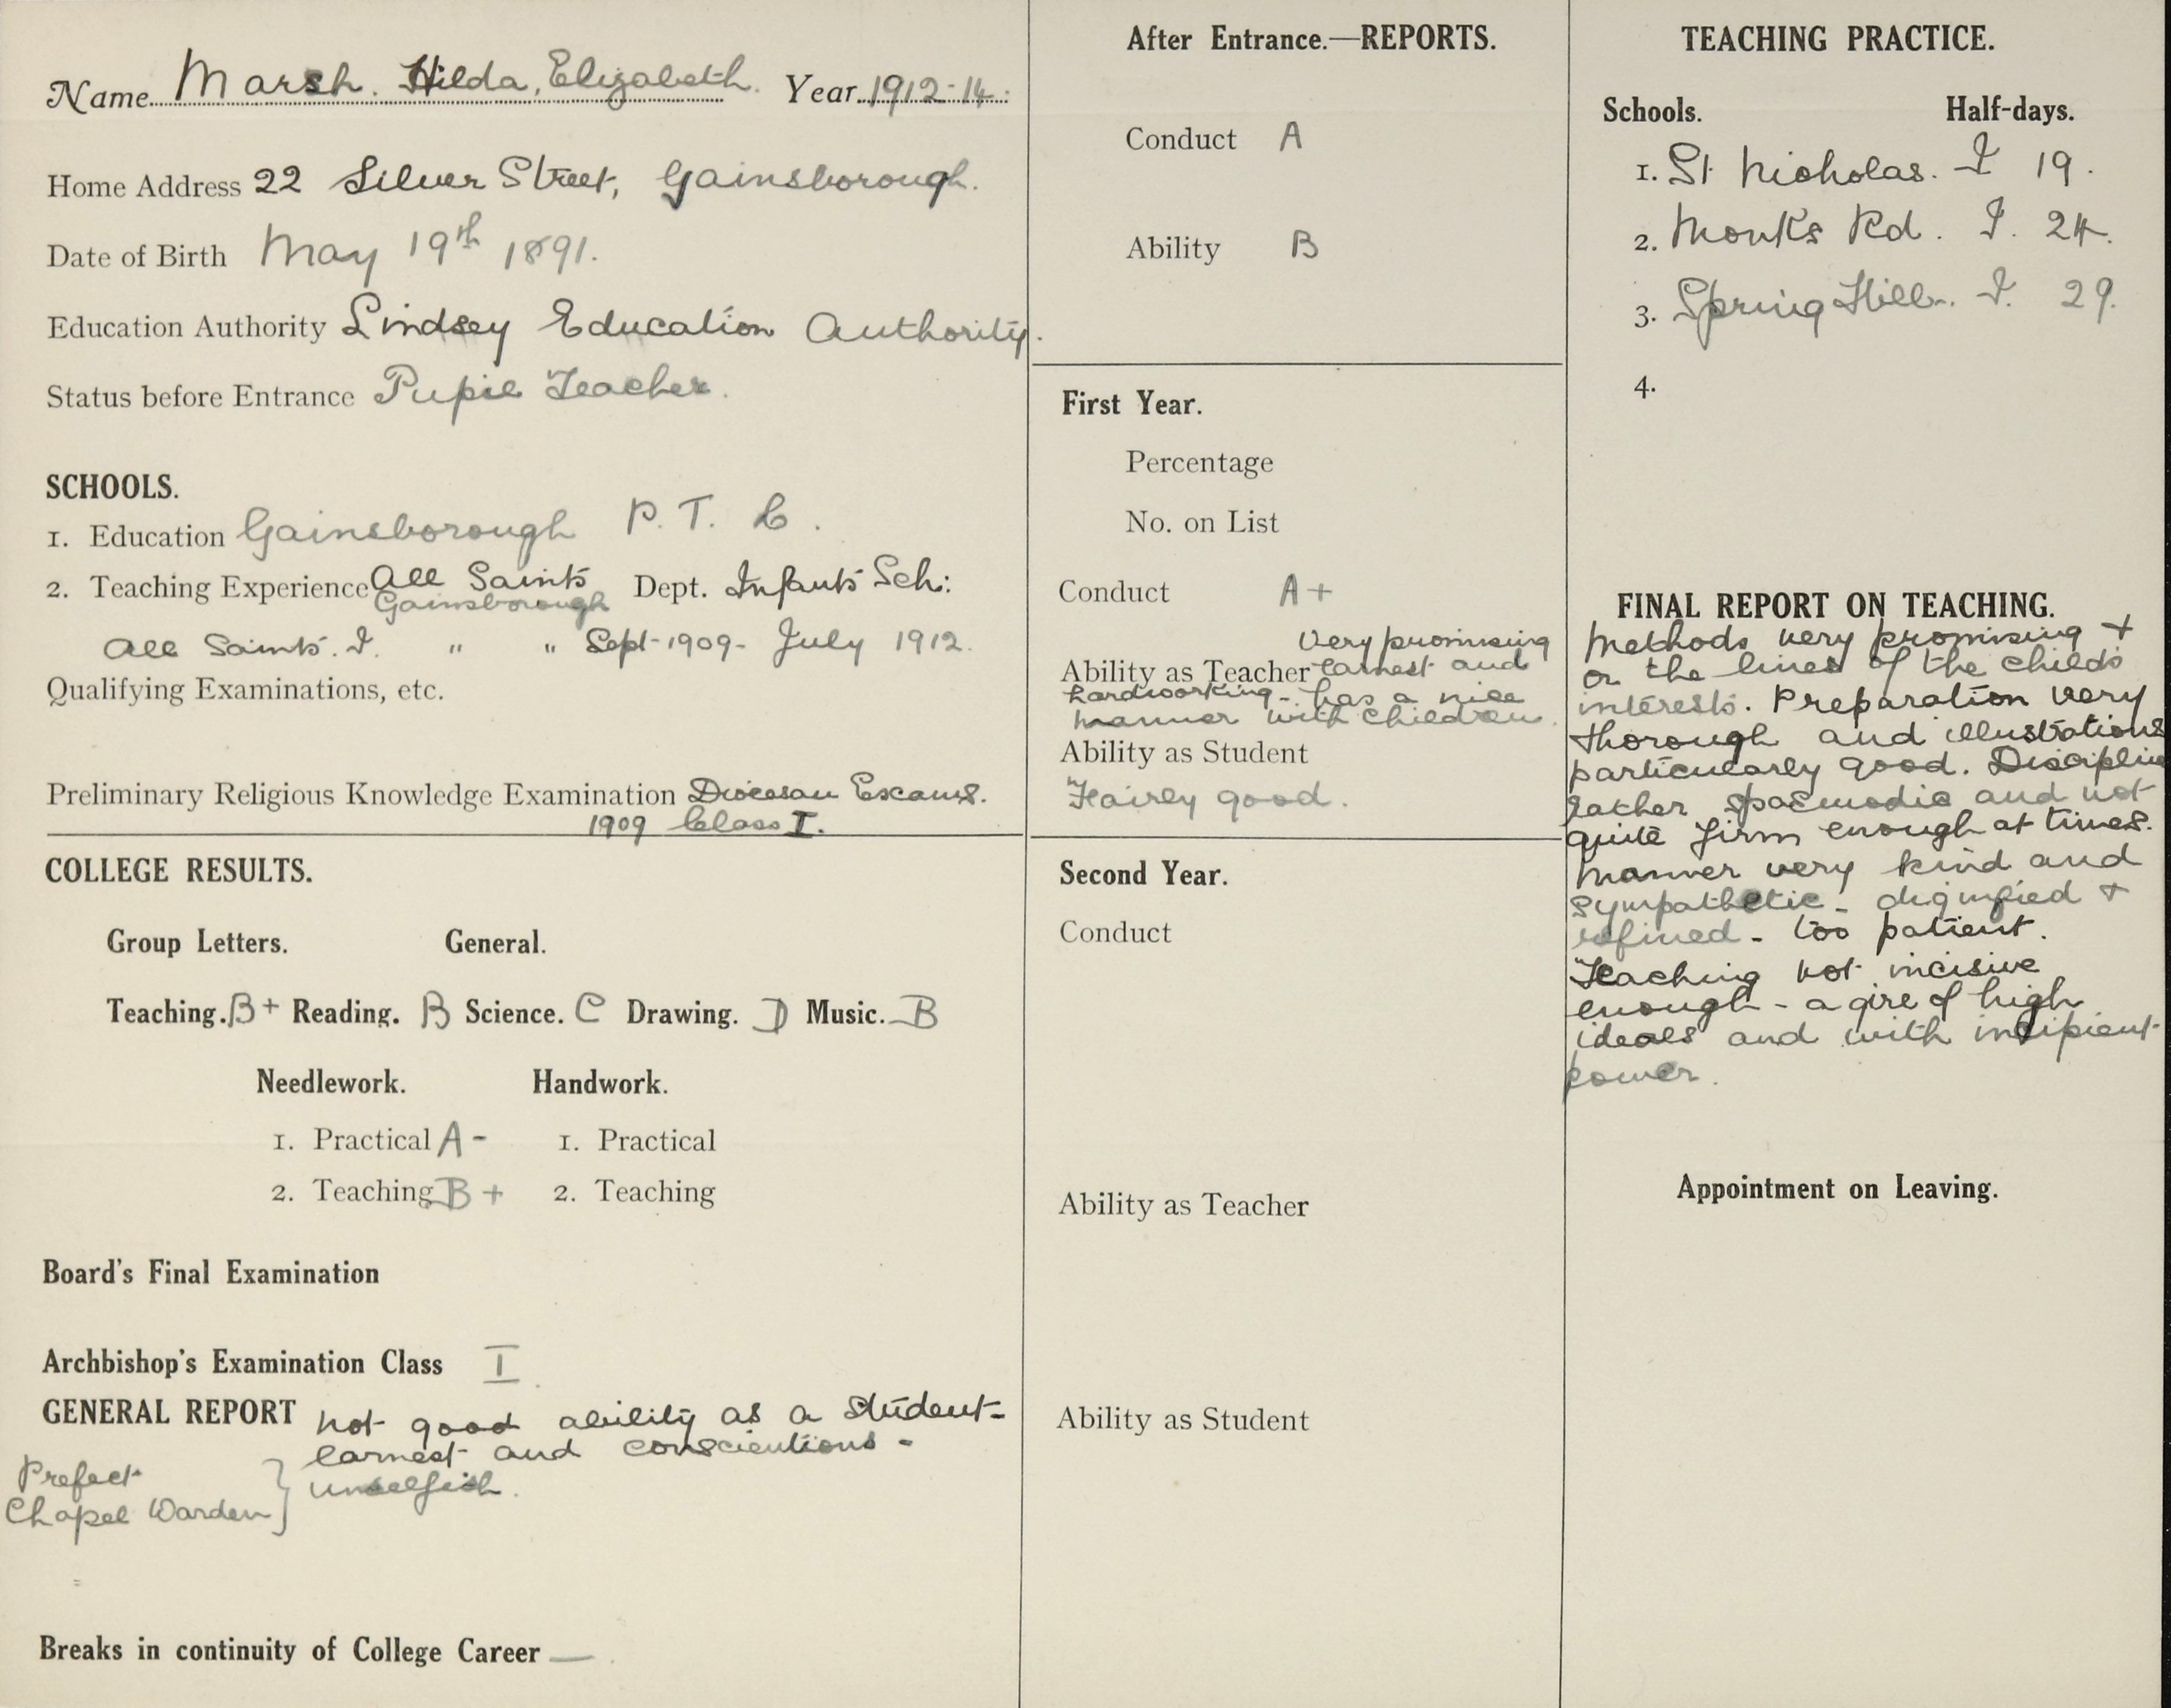 Name Marsh. Hilda, Elizabeth. Year 1912-14.
Home Address 22 Silver Street, Gainsborough.
Date of Birth May 19th 1891.
Education Authority Lindsey Education Authority.
Status before Entrance Pupil Teacher.
SCHOOLS.
1. Education Gainsborough P. T. C.
2. Teaching Experience All Saints Dept. Infants Sch:
Gainsborough
All Saints. I. " " Sept-1909- July 1912.
Qualifying Examinations, etc.
Preliminary Religious Knowledge Examination Diocesan Exams.
1909 Class I.
COLLEGE RESULTS.
Group Letters. General.
Teaching. B+ Reading. B Science. C Drawing. D Music. B
Needlework. Handwork.
1. Practical A- 1. Practical
2. Teaching B+ 2. Teaching
Board's Final Examination
Archbishop's Examination Class I
GENERAL REPORT not good ability as a student-
earnest and conscientious -
unselfish.
Prefect
Chapel Warden }
Breaks in continuity of College Career —
After Entrance.—REPORTS.
Conduct A
Ability B
First Year.
Percentage
No. on List
Conduct A+
Very promising
Ability as Teacher earnest and
hardworking - has a nice
manner with children.
Ability as Student
Fairly good.
Second Year.
Conduct
Ability as Teacher
Ability as Student
TEACHING PRACTICE.
Schools. Half-days.
1. St Nicholas. I 19.
2. Monks Rd. I. 24.
3. Spring Hill. I. 29.
4.
FINAL REPORT ON TEACHING.
Methods very promising +
on the lines of the child's
interests. Preparation very
thorough and illustrations
particularly good. Discipline
rather spasmodic and not
quite firm enough at times.
Manner very kind and
sympathetic - dignified +
refined - too patient.
Teaching not incisive
enough - a girl of high
ideals and with incipient
power.
Appointment on Leaving.